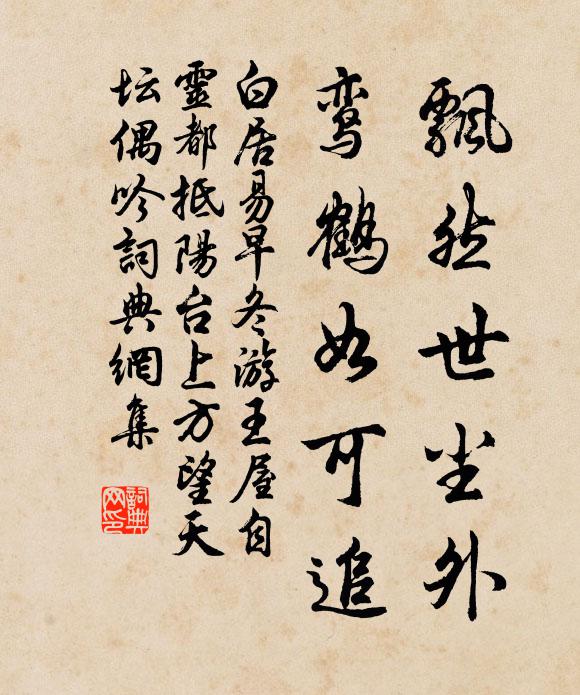 飄然世尘外
鸾鶴如可追
白居易早冬游王屋自
靈都抵陽台上方望天
坛偶吟詞典網集
詞典
网印